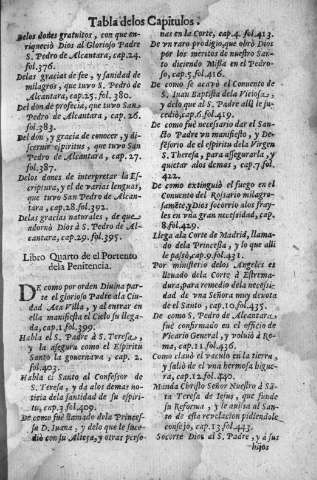 Tabla delos Capitulos.
Delos dones gratuitos, con que en-
riqueciò Dios al Glorioso Padre
S. Pedro de Alcantara, cap. 24.
fol. 376.
Delas gracias de fee, y sanidad de
milagros, que tuvo S. Pedro de
Alcantara, cap. 25. fol. 380.
Del don de profecia, que tuvo San
Pedro de Alcantara, cap. 26.
fol. 383.
Del don, y gracia de conocer, y dis-
cernir espiritus, que tuvo San
Pedro de Alcantara, cap. 27.
fol. 387.
Delos dones de interpretar la Es-
criptura, y el de varias lenguas,
que tuvo San Pedro de Alcan-
tara, cap. 28. fol. 392.
Delas gracias naturales, de que
adornò Dios à S. Pedro de Al-
cantara, cap. 29. fol. 395.
Libro Quarto de el Portento
dela Penitencia.
DE como por orden Divina par-
te el glorioso Padre ala Ciu-
dad Avila, y al entrar en
ella manifiesta el Cielo su llega-
da, cap. 1. fol. 399.
Habla el S. Padre à S. Teresa,
y la asegura como el Espiritu
Santo la governava, cap. 2.
fol. 403.
Habla el Santo al Confessor de
S. Teresa, y da alos demas no-
ticia dela santidad de su espiri-
tu, cap. 3. fol. 409.
De como fue llamado dela Princes-
sa D. Juana, y delo que le suce-
diò con su Alteza, y otras perso-
nas en la Corte, cap. 4. fol. 413.
De vn raro prodigio, que obrò Dios
por los meritos de nuestro San-
to diciendo Missa en el Pedro-
so, cap. 5. fol. 416.
De como se acavò el Convento de
S. Juan Baptista dela Viciosa,
y delo que al S. Padre alli le su-
cediò, cap. 6. fol. 419.
De como fue necesario dar el San-
cto Padre vn manifiesto, y De-
fensorio de el espiritu dela Virgen
S. Theresa, para assegurarla, y
quietar alos demas, cap. 7. fol.
422.
De como extinguiò el fuego en el
Convento del Rosario milagro-
samente, y Dios socorrio alos fray-
les en vna gran necesidad, cap.
8. fol. 429.
Llega ala Corte de Madrid, llama-
do dela Princessa, y lo que alli
le passò, cap. 9. fol. 431.
Por ministerio delos Angeles es
llevado dela Corte à Estrema-
dura, para remedio dela necesi-
dad de vna Señora muy devota
de el Santo, cap. 10. fol. 435.
De como S. Pedro de Alcantara
fue confirmado en el officio de
Vicario General, y volviò à Ro-
ma, cap. 11. fol. 436.
Como clavò el vaculo en la tierra,
y saliò de el vna hermosa higue-
ra, cap. 12. fol. 440.
Manda Christo Señor Nuestro à Sã-
ta Teresa de Jesus, que funde
su Reforma, y le avisa al San-
to de esta revelacion pidiendole
consejo, cap. 13. fol. 443.
Socorre Dios al S. Padre, y à sus
hijos